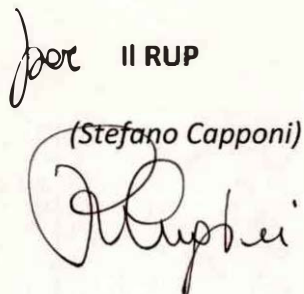 per Il RUP
(Stefano Capponi)